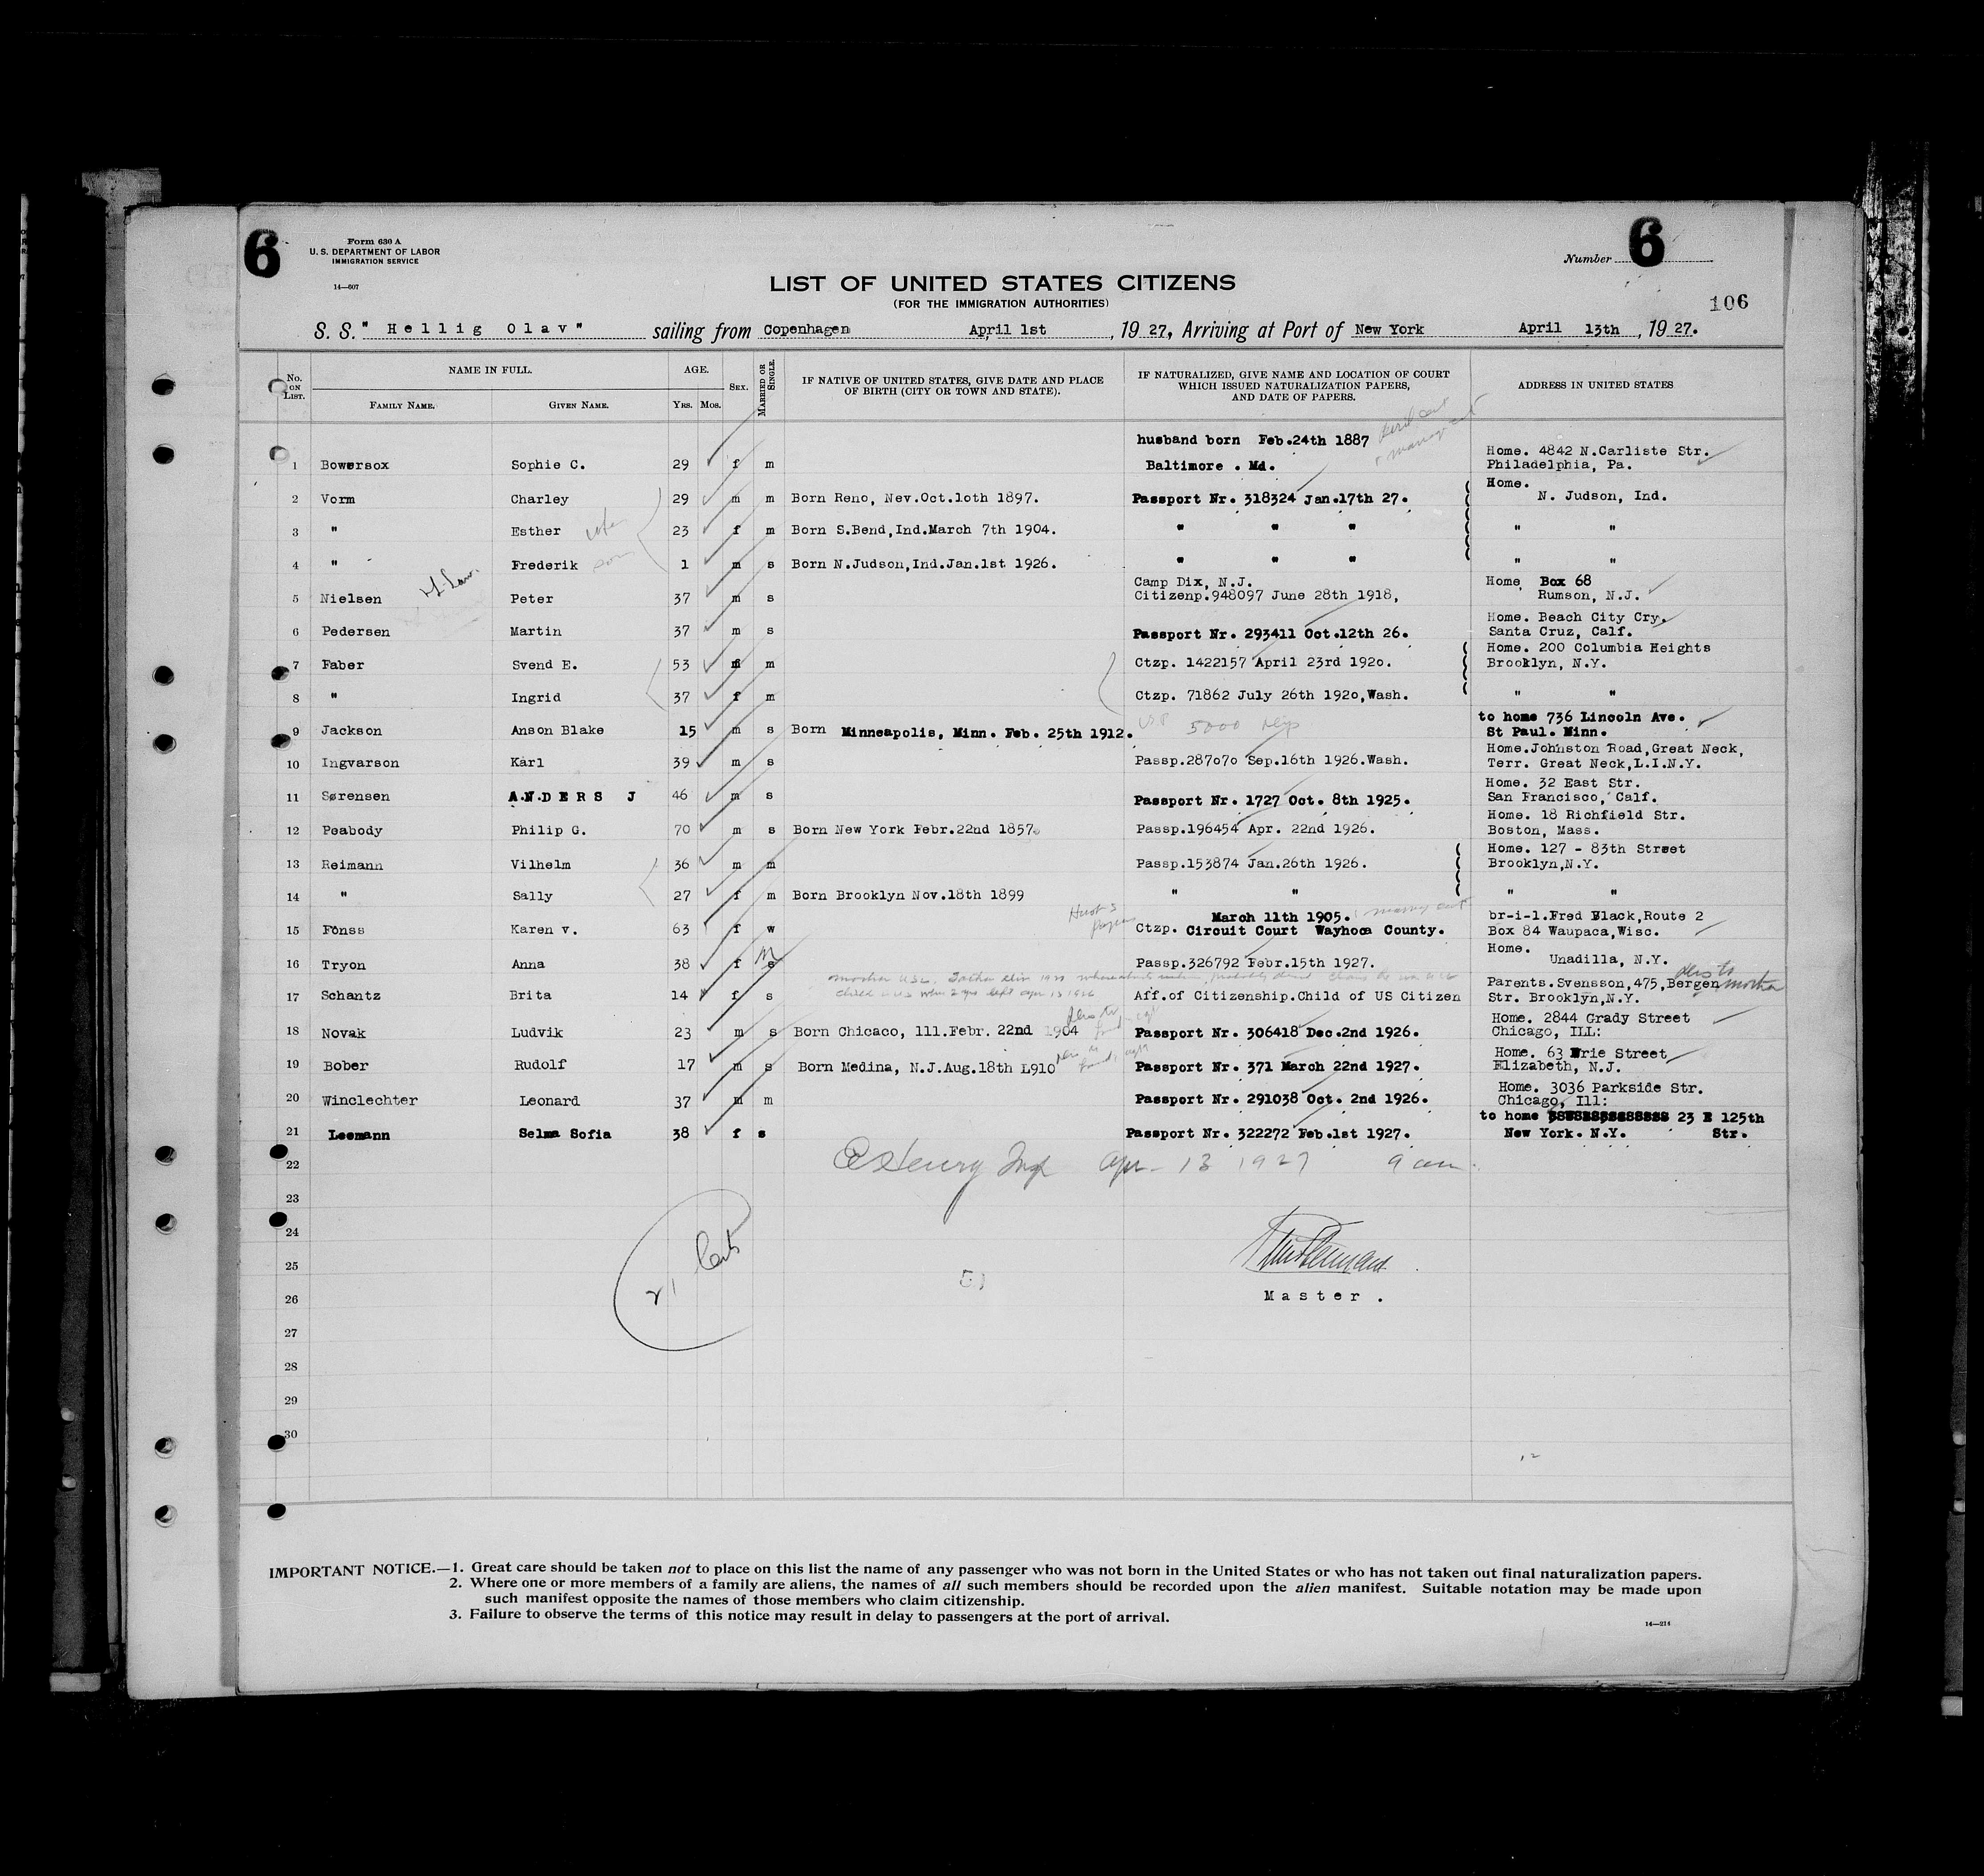 6
Form 630 A
U. S. DEPARTMENT OF LABOR
IMMIGRATION SERVICE
14—607
Number 6
106
LIST OF UNITED STATES CITIZENS
(FOR THE IMMIGRATION AUTHORITIES)
S. S. " Hellig Olav" sailing from Copenhagen April 1st , 19 27, Arriving at Port of New York April 13th , 19 27.
No. ON LIST. NAME IN FULL. FAMILY NAME. GIVEN NAME. AGE. YRS. MOS. SEX. MARRIED OR SINGLE. IF NATIVE OF UNITED STATES, GIVE DATE AND PLACE OF BIRTH (CITY OR TOWN AND STATE). IF NATURALIZED, GIVE NAME AND LOCATION OF COURT WHICH ISSUED NATURALIZATION PAPERS, AND DATE OF PAPERS. ADDRESS IN UNITED STATES
husband born Feb.24th 1887
1 Bowersox Sophie C. 29 f m Baltimore . Md. Home. 4842 N.Carliste Str. Philadelphia, Pa.
2 Vorm Charley 29 m m Born Reno, Nev.Oct.1oth 1897. Passport Nr. 318324 Jan.17th 27. Home. N. Judson, Ind.
3 " Esther wife 23 f m Born S.Bend,Ind.March 7th 1904. " " " " "
4 " Frederik son 1 m s Born N.Judson,Ind.Jan.1st 1926. " " " " "
5 Nielsen Peter 37 m s Camp Dix, N.J. Citizenp.948097 June 28th 1918, Home Box 68 Rumson, N.J.
6 Pedersen Martin 37 m s Passport Nr. 293411 Oct.12th 26. Home. Beach City Cry. Santa Cruz, Calf.
7 Faber Svend E. 53 m m Ctzp. 1422157 April 23rd 192o. Home. 200 Columbia Heights Brooklyn, N.Y.
8 " Ingrid 37 f m Ctzp. 71862 July 26th 192o,Wash. " "
9 Jackson Anson Blake 15 m s Born Minneapolis, Minn. Feb. 25th 1912. 5000 to home 736 Lincoln Ave. St Paul. Minn.
10 Ingvarson Karl 39 m s Passp.287o7o Sep.16th 1926.Wash. Home.Johnston Road,Great Neck, Terr. Great Neck,L.I.N.Y.
11 Sørensen A.N.D E R S J 46 m s Passport Nr. 1727 Oct. 8th 1925. Home. 32 East Str. San Francisco, Calf.
12 Peabody Philip G. 70 m s Born New York Febr.22nd 1857. Passp.196454 Apr. 22nd 1926. Home. 18 Richfield Str. Boston, Mass.
13 Reimann Vilhelm 36 m m Passp.153874 Jan.26th 1926. Home. 127 - 83th Street Brooklyn,N.Y.
14 " Sally 27 f m Born Brooklyn Nov.18th 1899 " " " "
15 Fønss Karen v. 63 f w March 11th 1905. Ctzp. Circuit Court Wayhoca County. br-i-l.Fred Black,Route 2 Box 84 Waupaca,Wisc.
16 Tryon Anna 38 f s M Passp.326792 Febr.15th 1927. Home. Unadilla, N.Y.
17 Schantz Brita 14 f s Aff.of Citizenship.Child of US Citizen Parents.Svensson,475,Bergen Str. Brooklyn,N.Y. mother
18 Novak Ludvik 23 m s Born Chicaco, 111.Febr. 22nd 1904 Passport Nr. 306418 Dec.2nd 1926. Home. 2844 Grady Street Chicago, ILL:
19 Bober Rudolf 17 m s Born Medina, N.J.Aug.18th L910 Passport Nr. 371 March 22nd 1927. Home. 63 Erie Street Elizabeth, N.J.
20 Winclechter Leonard 37 m m Passport Nr. 291038 Oct. 2nd 1926. Home. 3036 Parkside Str. Chicago, Ill:
21 Leemann Selma Sofia 38 f s Passport Nr. 322272 Feb.1st 1927. to home 23 E 125th Str. New York. N.Y.
22 Henry Insp Apr 13 1927 9 am
23
24
25
26 Master .
27
28
29
30
IMPORTANT NOTICE.—1. Great care should be taken not to place on this list the name of any passenger who was not born in the United States or who has not taken out final naturalization papers.
2. Where one or more members of a family are aliens, the names of all such members should be recorded upon the alien manifest. Suitable notation may be made upon
such manifest opposite the names of those members who claim citizenship.
3. Failure to observe the terms of this notice may result in delay to passengers at the port of arrival.
14—214